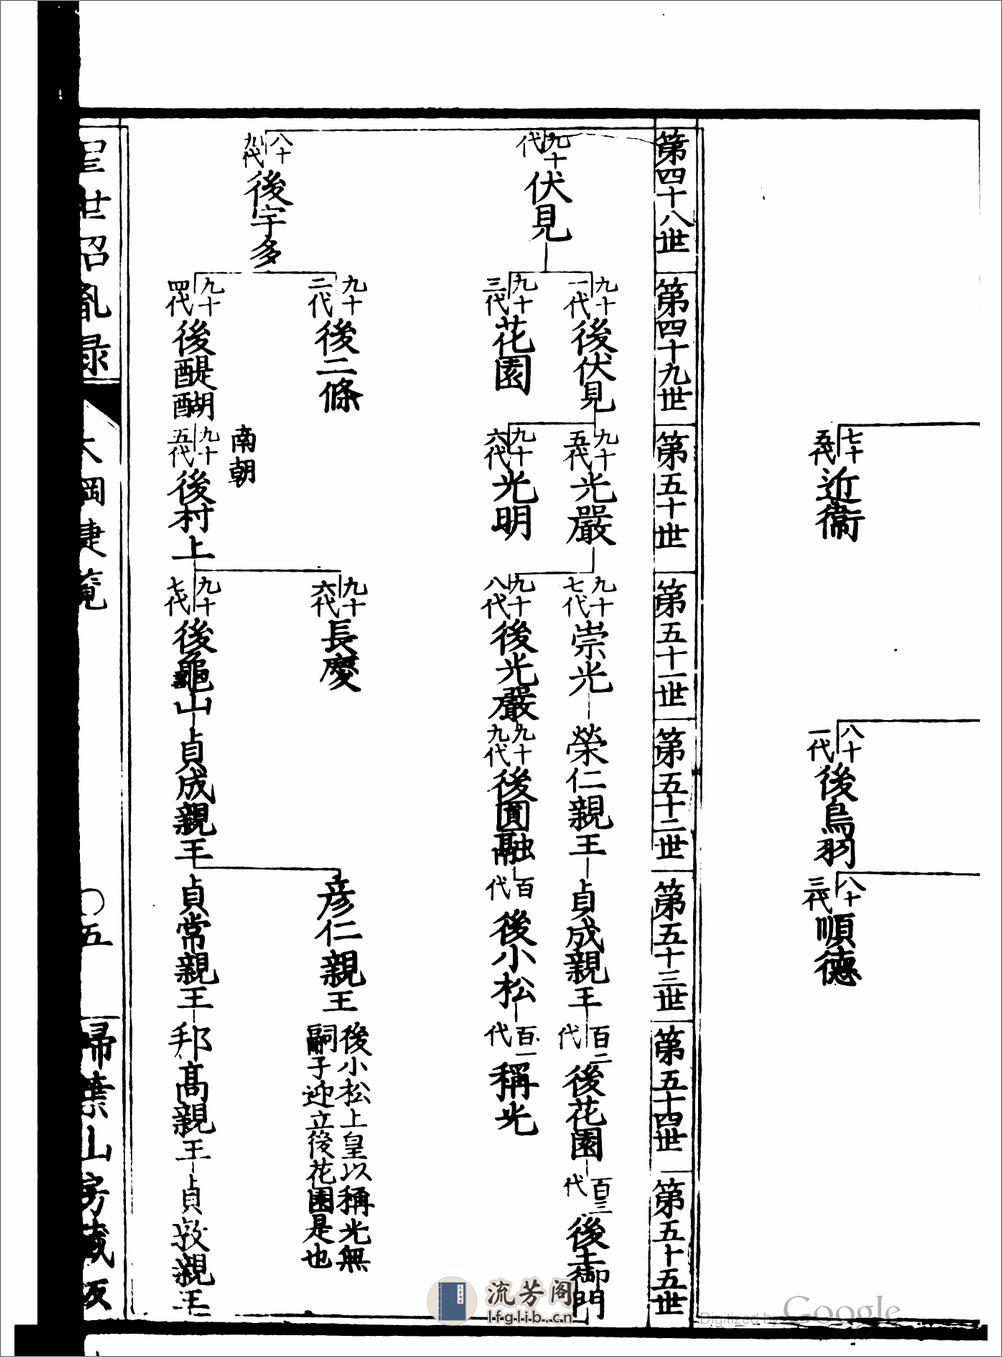 七十五代
近衞
八十一代
後鳥羽
八十三代
順德
第四十八世
第四十九世
第五十世
第五十一世
第五十二世
第五十三世
第五十四世
第五十五世
九十代
伏見
九十一代
後伏見
九十五代
光嚴
九十七代
崇光
榮仁親王
貞成親王
百二代
後花園
百三代
後土御門
九十三代
花園
九十六代
光明
九十八代
後光嚴
九十九代
後圓融
百代
後小松
百一代
稱光
八十九代
後宇多
九十二代
後二條
九十六代
長慶
彦仁親王
後小松上皇以稱光無
嗣子迎立後花園是也
南朝
九十四代
後醍醐
九十五代
後村上
九十七代
後龜山
貞成親王
貞常親王
邦高親王
貞敦親王
大綱捷覽
〇五
掃葉山房藏版
流芳阁
lfglib.cn
Digitized by Google